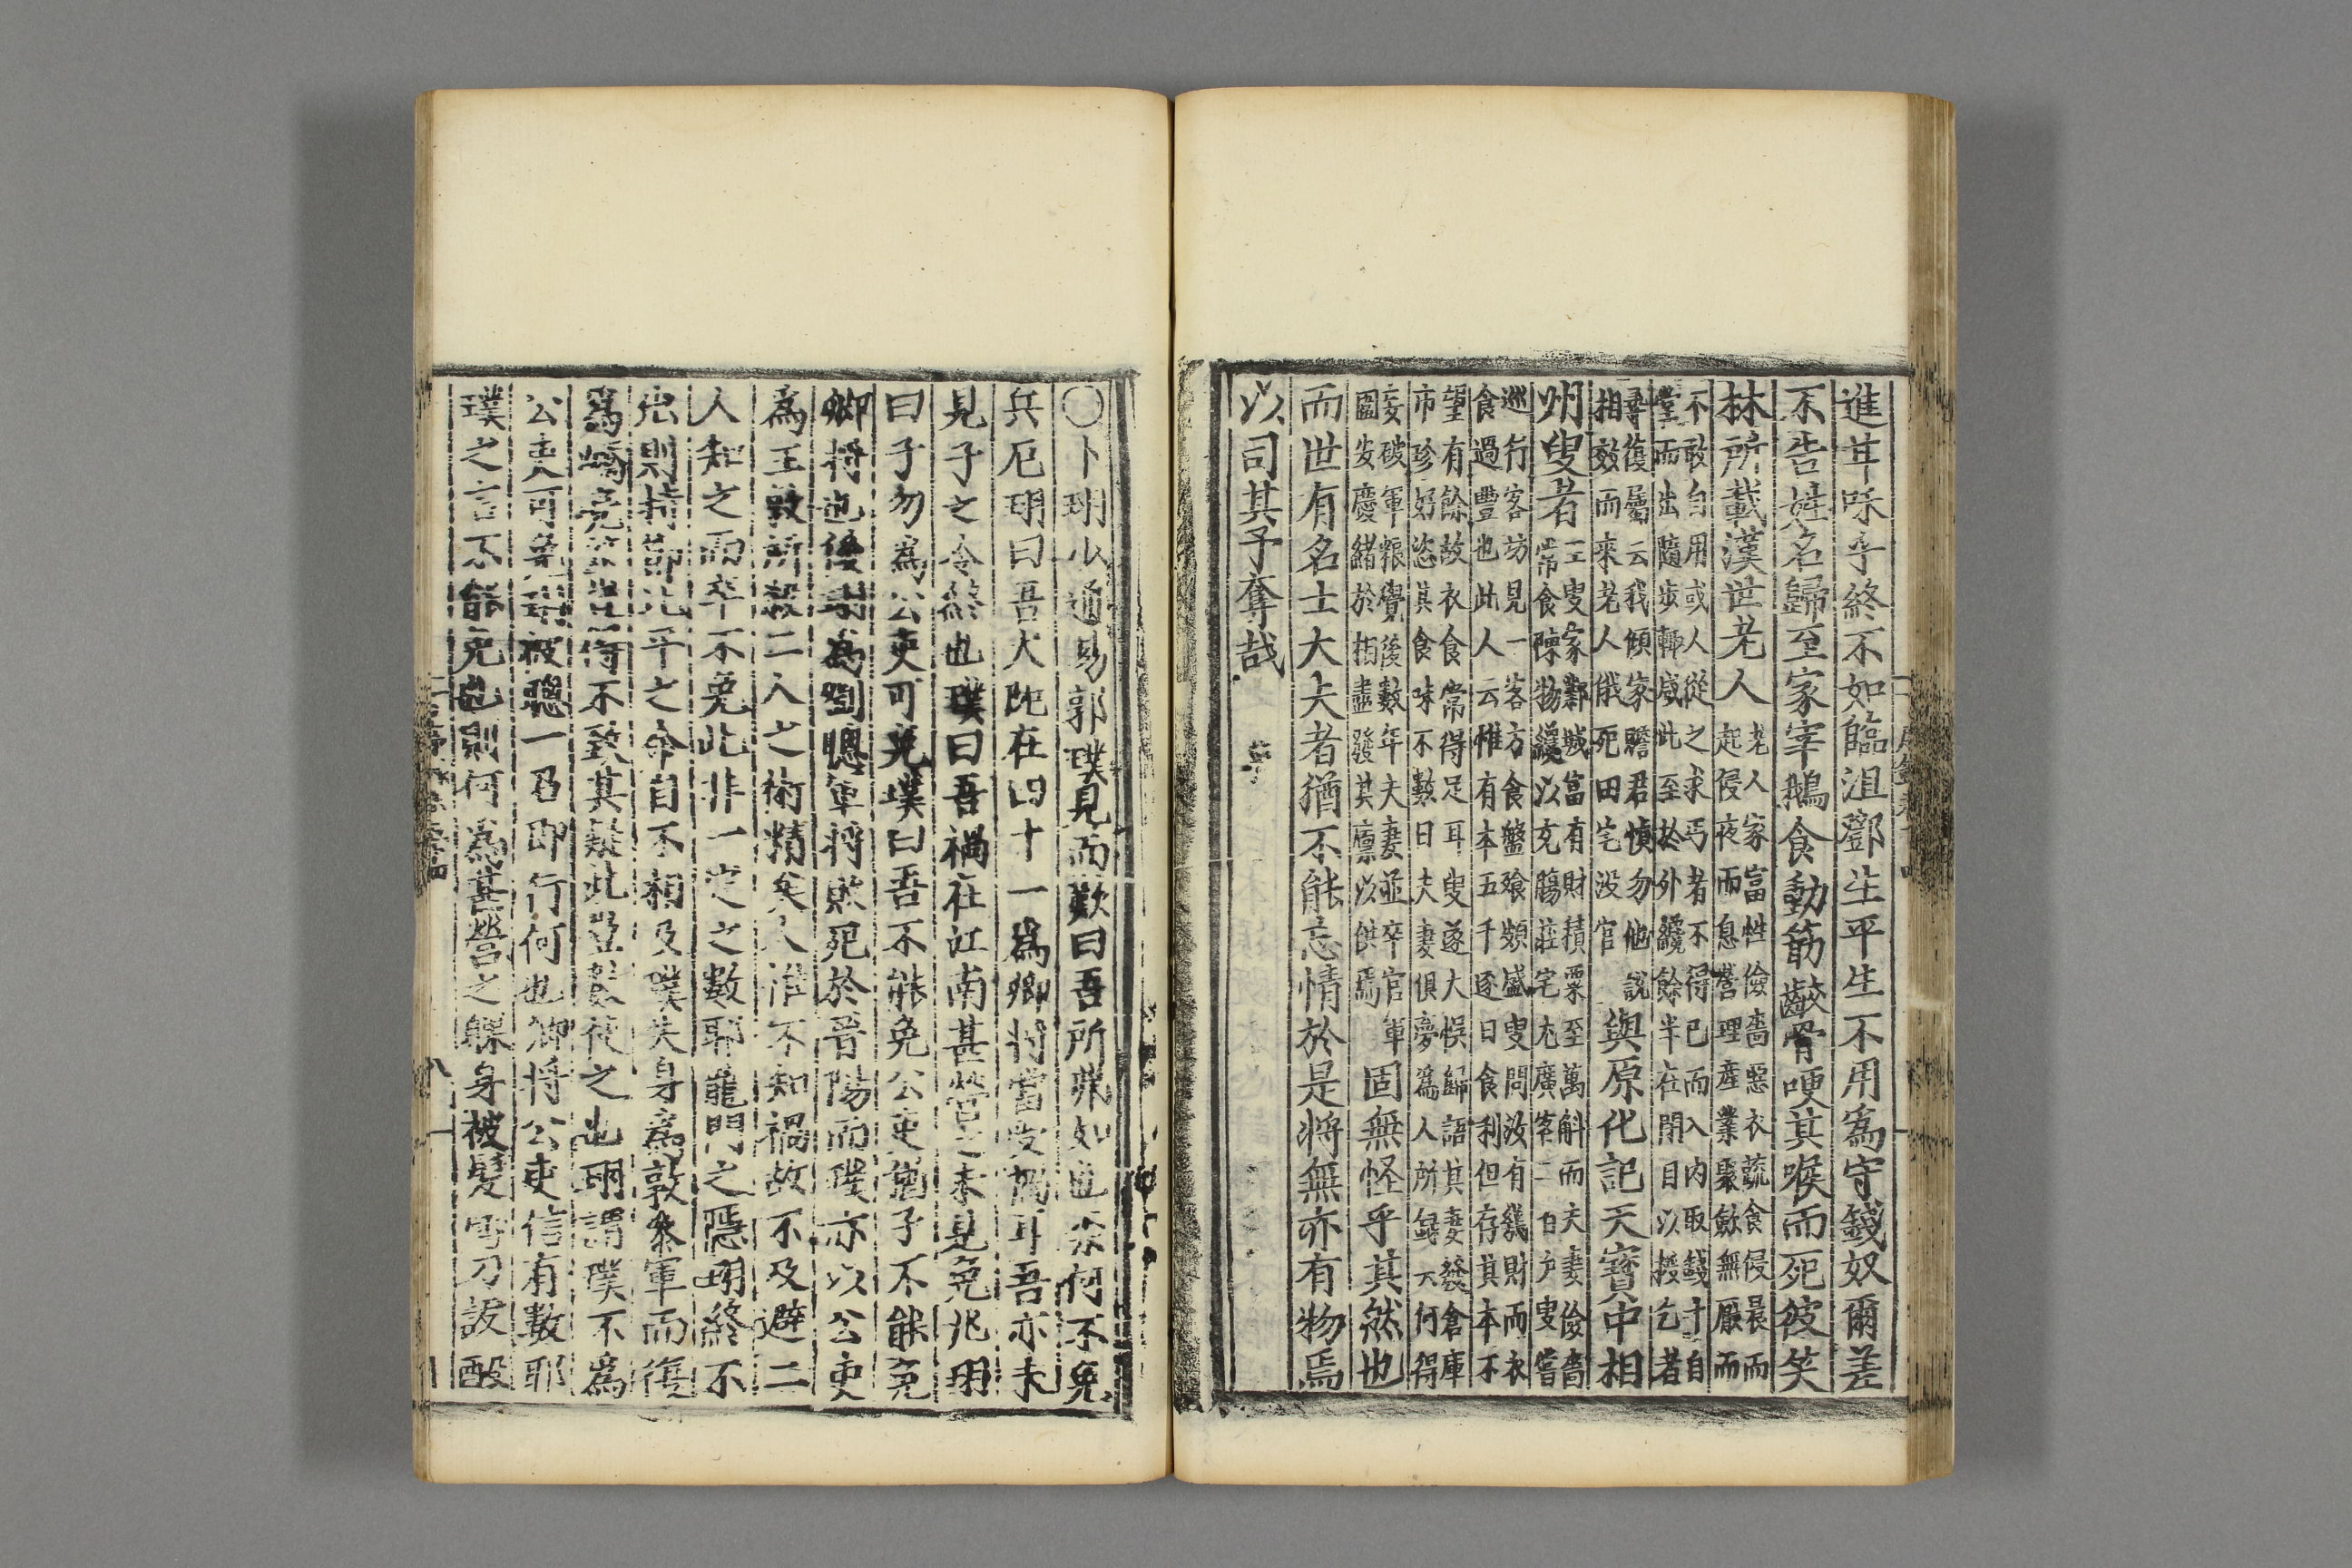 進茸呼乎終不如臨沮鄧生平生不用為守錢奴爾差
不告姓名歸至家宰鵝食動筋齩骨哽其喉而死彼笑
林所載漢世老人
老人家富性儉嗇惡衣蔬食侵晨而
起侵夜而息營理產業聚斂無厭而
不敢自用或人從之求丐者不得已而入内取錢十自
堂而出隨歩輒減比至於外纔餘半在閉目以授乞者
尋復屬云我傾家贍君慎勿他說
相效而來老人俄死田宅没官
與原化記天寶中相
州叟者
王叟家鄴城富有財積粟至萬斛而夫妻儉嗇
常食陳物纔以充腸莊宅尤廣客二百戶叟嘗
巡行客坊見一客方食盤飱頗盛叟問汝有幾財而衣
食過豐也此人云惟有本五千逐日食利但存其本不
望有餘故衣食常得足耳叟遂大悮歸語其妻發倉庫
市珍好恣其食味不數日夫妻俱夢為人所録云何得
妄破軍粮覺後數年夫妻並卒官軍
圍安慶緒於相盡發其廩以供焉
固無怪乎其然也
而世有名士大夫者猶不能忘情於是將無亦有物焉
以司其予奪哉
〇卜珝少通易郭璞見而歎曰吾所弗如也奈何不免
兵厄珝曰吾大阨在四十一為卿將當受禍耳吾亦未
見子之令終也璞曰吾禍在江南甚營之未見免兆珝
曰子勿為公吏可免璞曰吾不能免公吏猶子不能免
卿將也後珝為劉聰軍將敗死於晉陽而璞亦以公吏
為王敦所殺二人之術精矣人進不知禍故不及避二
人知之而卒不免此非一定之數耶龍門之隱珝終不
出則持節北平之命自不相及璞失身為敦參軍而復
為嶠亮筮豈得不致其疑此豈數使之也珝謂璞不為
公吏可免珝被聰一召即行何也卿將公吏信有數耶
璞之言不能免也則何為甚營之躶身被髮啣刀設醊